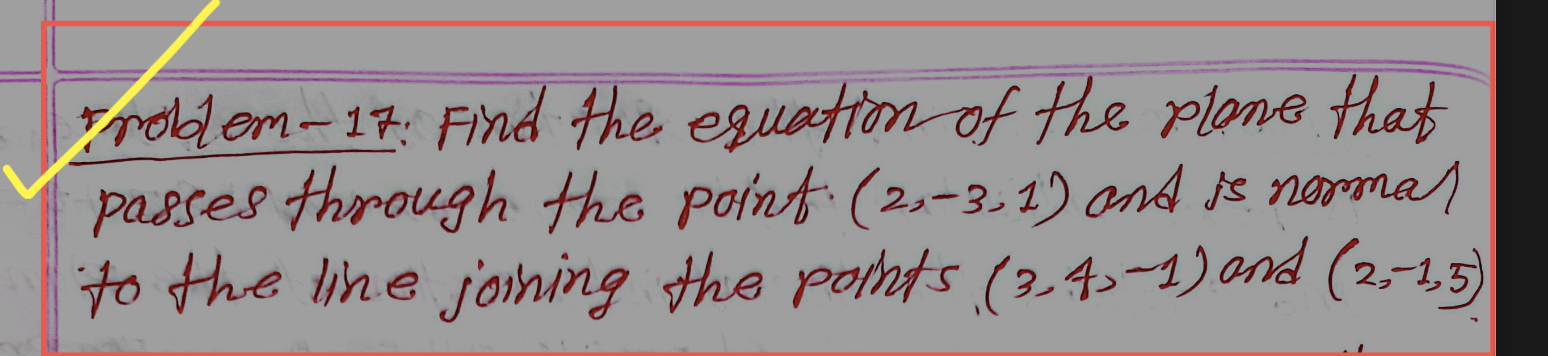 Problem-17: Find the equation of the plane that
passes through the point (2,-3,1) and is normal
to the line joining the points (3,4,-1) and (2,-1,5)